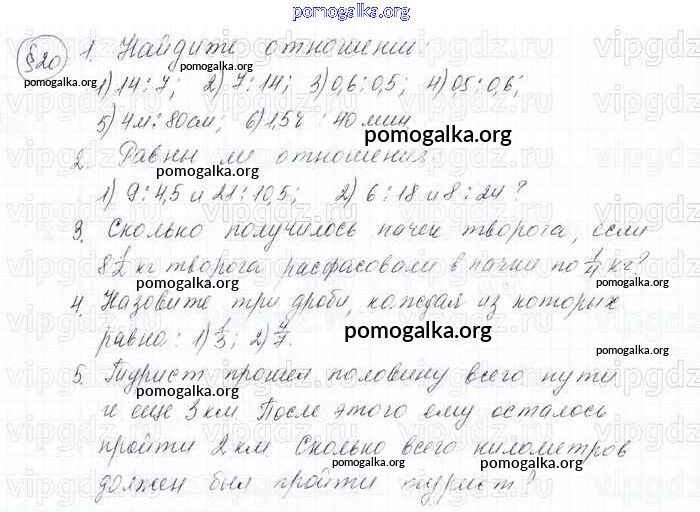 pomogalka.org
§20 1. Найдите отношении:
pomogalka.org
1) 14:7; 2) 7:14; 3) 0,6:0,5; 4) 0,5:0,6;
pomogalka.org
5) 4м:80см; 6) 1,5ч : 40 мин
pomogalka.org
2. Равны ли отношения:
pomogalka.org
1) 9:4,5 и 21:10,5; 2) 6:18 и 8:24?
3. Сколько получилось пачек творога, если
8 1/2 кг творога расфасовали в пачки по 1/4 кг?
pomogalka.org
4. Назовите три дроби, каждая из которых
равна: 1) 1/3; 2) 4/7.
pomogalka.org
pomogalka.org
5. Турист прошел половину всего пути
pomogalka.org
и еще 3 км. После этого ему осталось
пройти 2 км. Сколько всего километров
pomogalka.org
pomogalka.org
должен был пройти турист?
vipgdz.ru